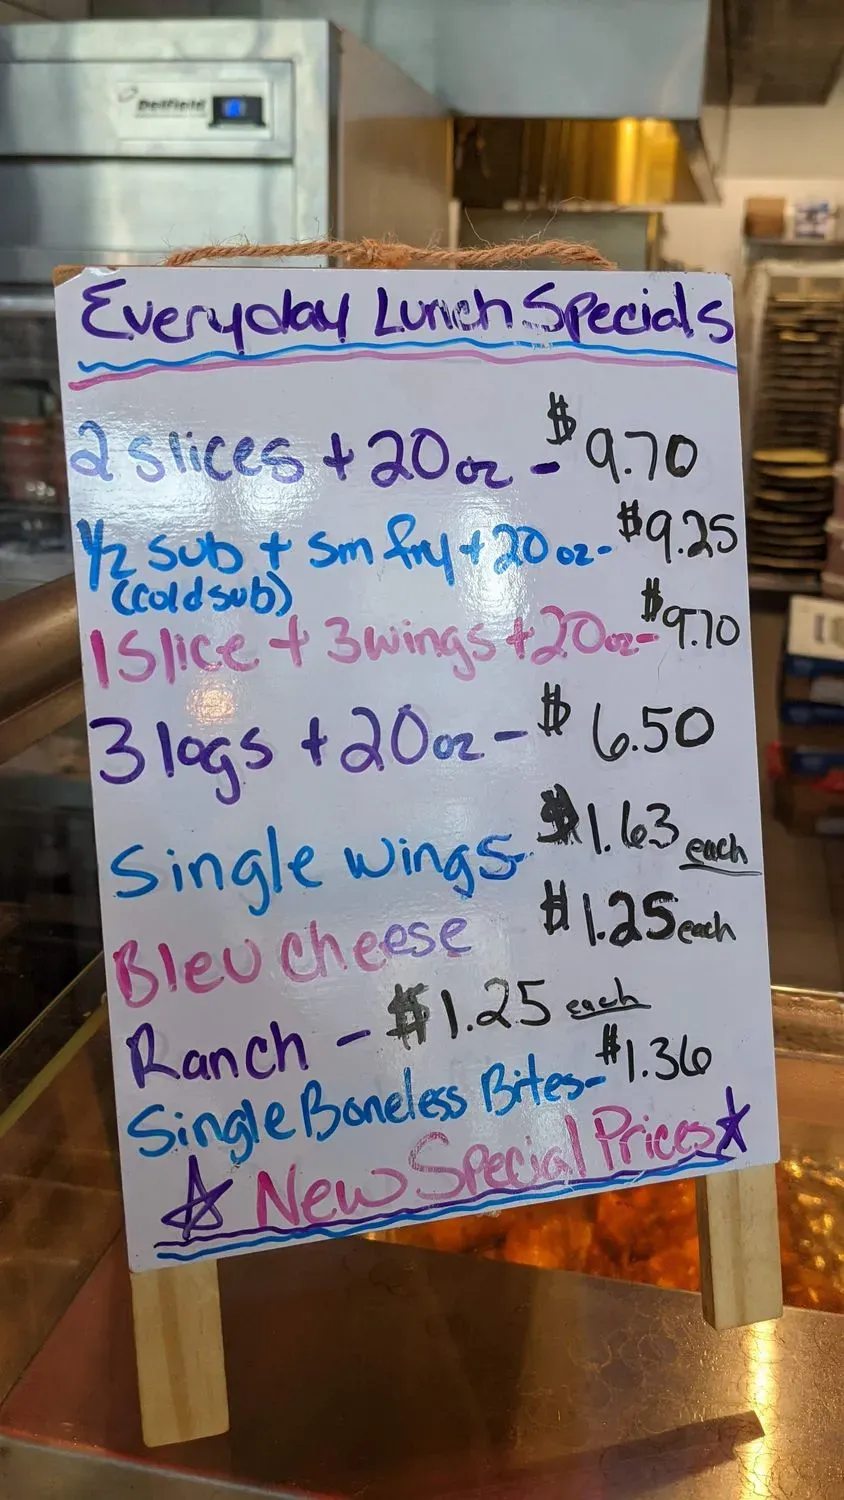 Delfield
Everyday Lunch Specials
2 slices + 20oz - $9.70
1/2 sub + sm fry + 20oz- $9.25
(cold sub)
1 Slice + 3 wings + 20oz- $9.70
3 logs + 20oz - $6.50
Single wings- $1.63 each
Bleu cheese $1.25 each
Ranch - $1.25 each
Single Boneless Bites- $1.36
New Special Prices